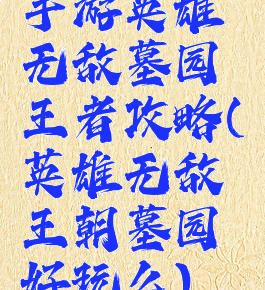 手游英雄
无敌墓园
王者攻略(
英雄无敌
王朝墓园
好玩么)